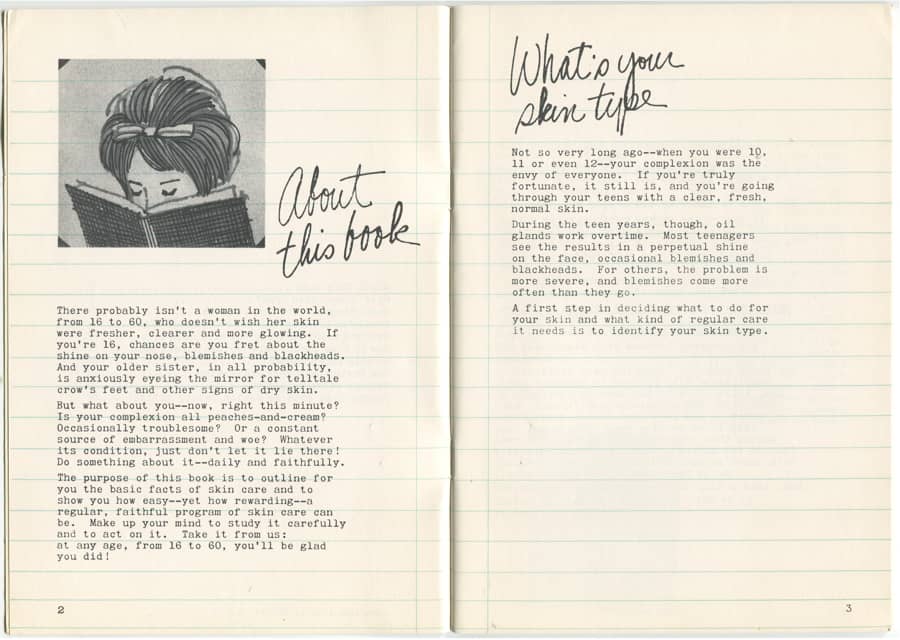 About
this book
There probably isn't a woman in the world,
from 16 to 60, who doesn't wish her skin
were fresher, clearer and more glowing.  If
you're 16, chances are you fret about the
shine on your nose, blemishes and blackheads.
And your older sister, in all probability,
is anxiously eyeing the mirror for telltale
crow's feet and other signs of dry skin.
But what about you--now, right this minute?
Is your complexion all peaches-and-cream?
Occasionally troublesome?  Or a constant
source of embarrassment and woe?  Whatever
its condition, just don't let it lie there!
Do something about it--daily and faithfully.
The purpose of this book is to outline for
you the basic facts of skin care and to
show you how easy--yet how rewarding--a
regular, faithful program of skin care can
be.  Make up your mind to study it carefully
and to act on it.  Take it from us:
at any age, from 16 to 60, you'll be glad
you did!
2
What's your
skin type
Not so very long ago--when you were 10,
11 or even 12--your complexion was the
envy of everyone.  If you're truly
fortunate, it still is, and you're going
through your teens with a clear, fresh,
normal skin.
During the teen years, though, oil
glands work overtime.  Most teenagers
see the results in a perpetual shine
on the face, occasional blemishes and
blackheads.  For others, the problem is
more severe, and blemishes come more
often than they go.
A first step in deciding what to do for
your skin and what kind of regular care
it needs is to identify your skin type.
3